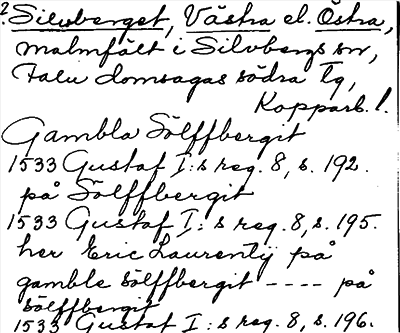 2. Silvberget, Västra el. Östra,
malmfält i Silvbergs sn,
Falu domsagas södra tg,
Kopparb. l.
Gambla Sölffbergit
1533 Gustaf I:s reg. 8, s. 192.
på Sölffbergit
1533 Gustaf I:s reg. 8, s. 195.
her Eric Laurentij på
gamble sölffbergit ---- på
sölffbergit
1533 Gustaf I:s reg. 8, s. 196.